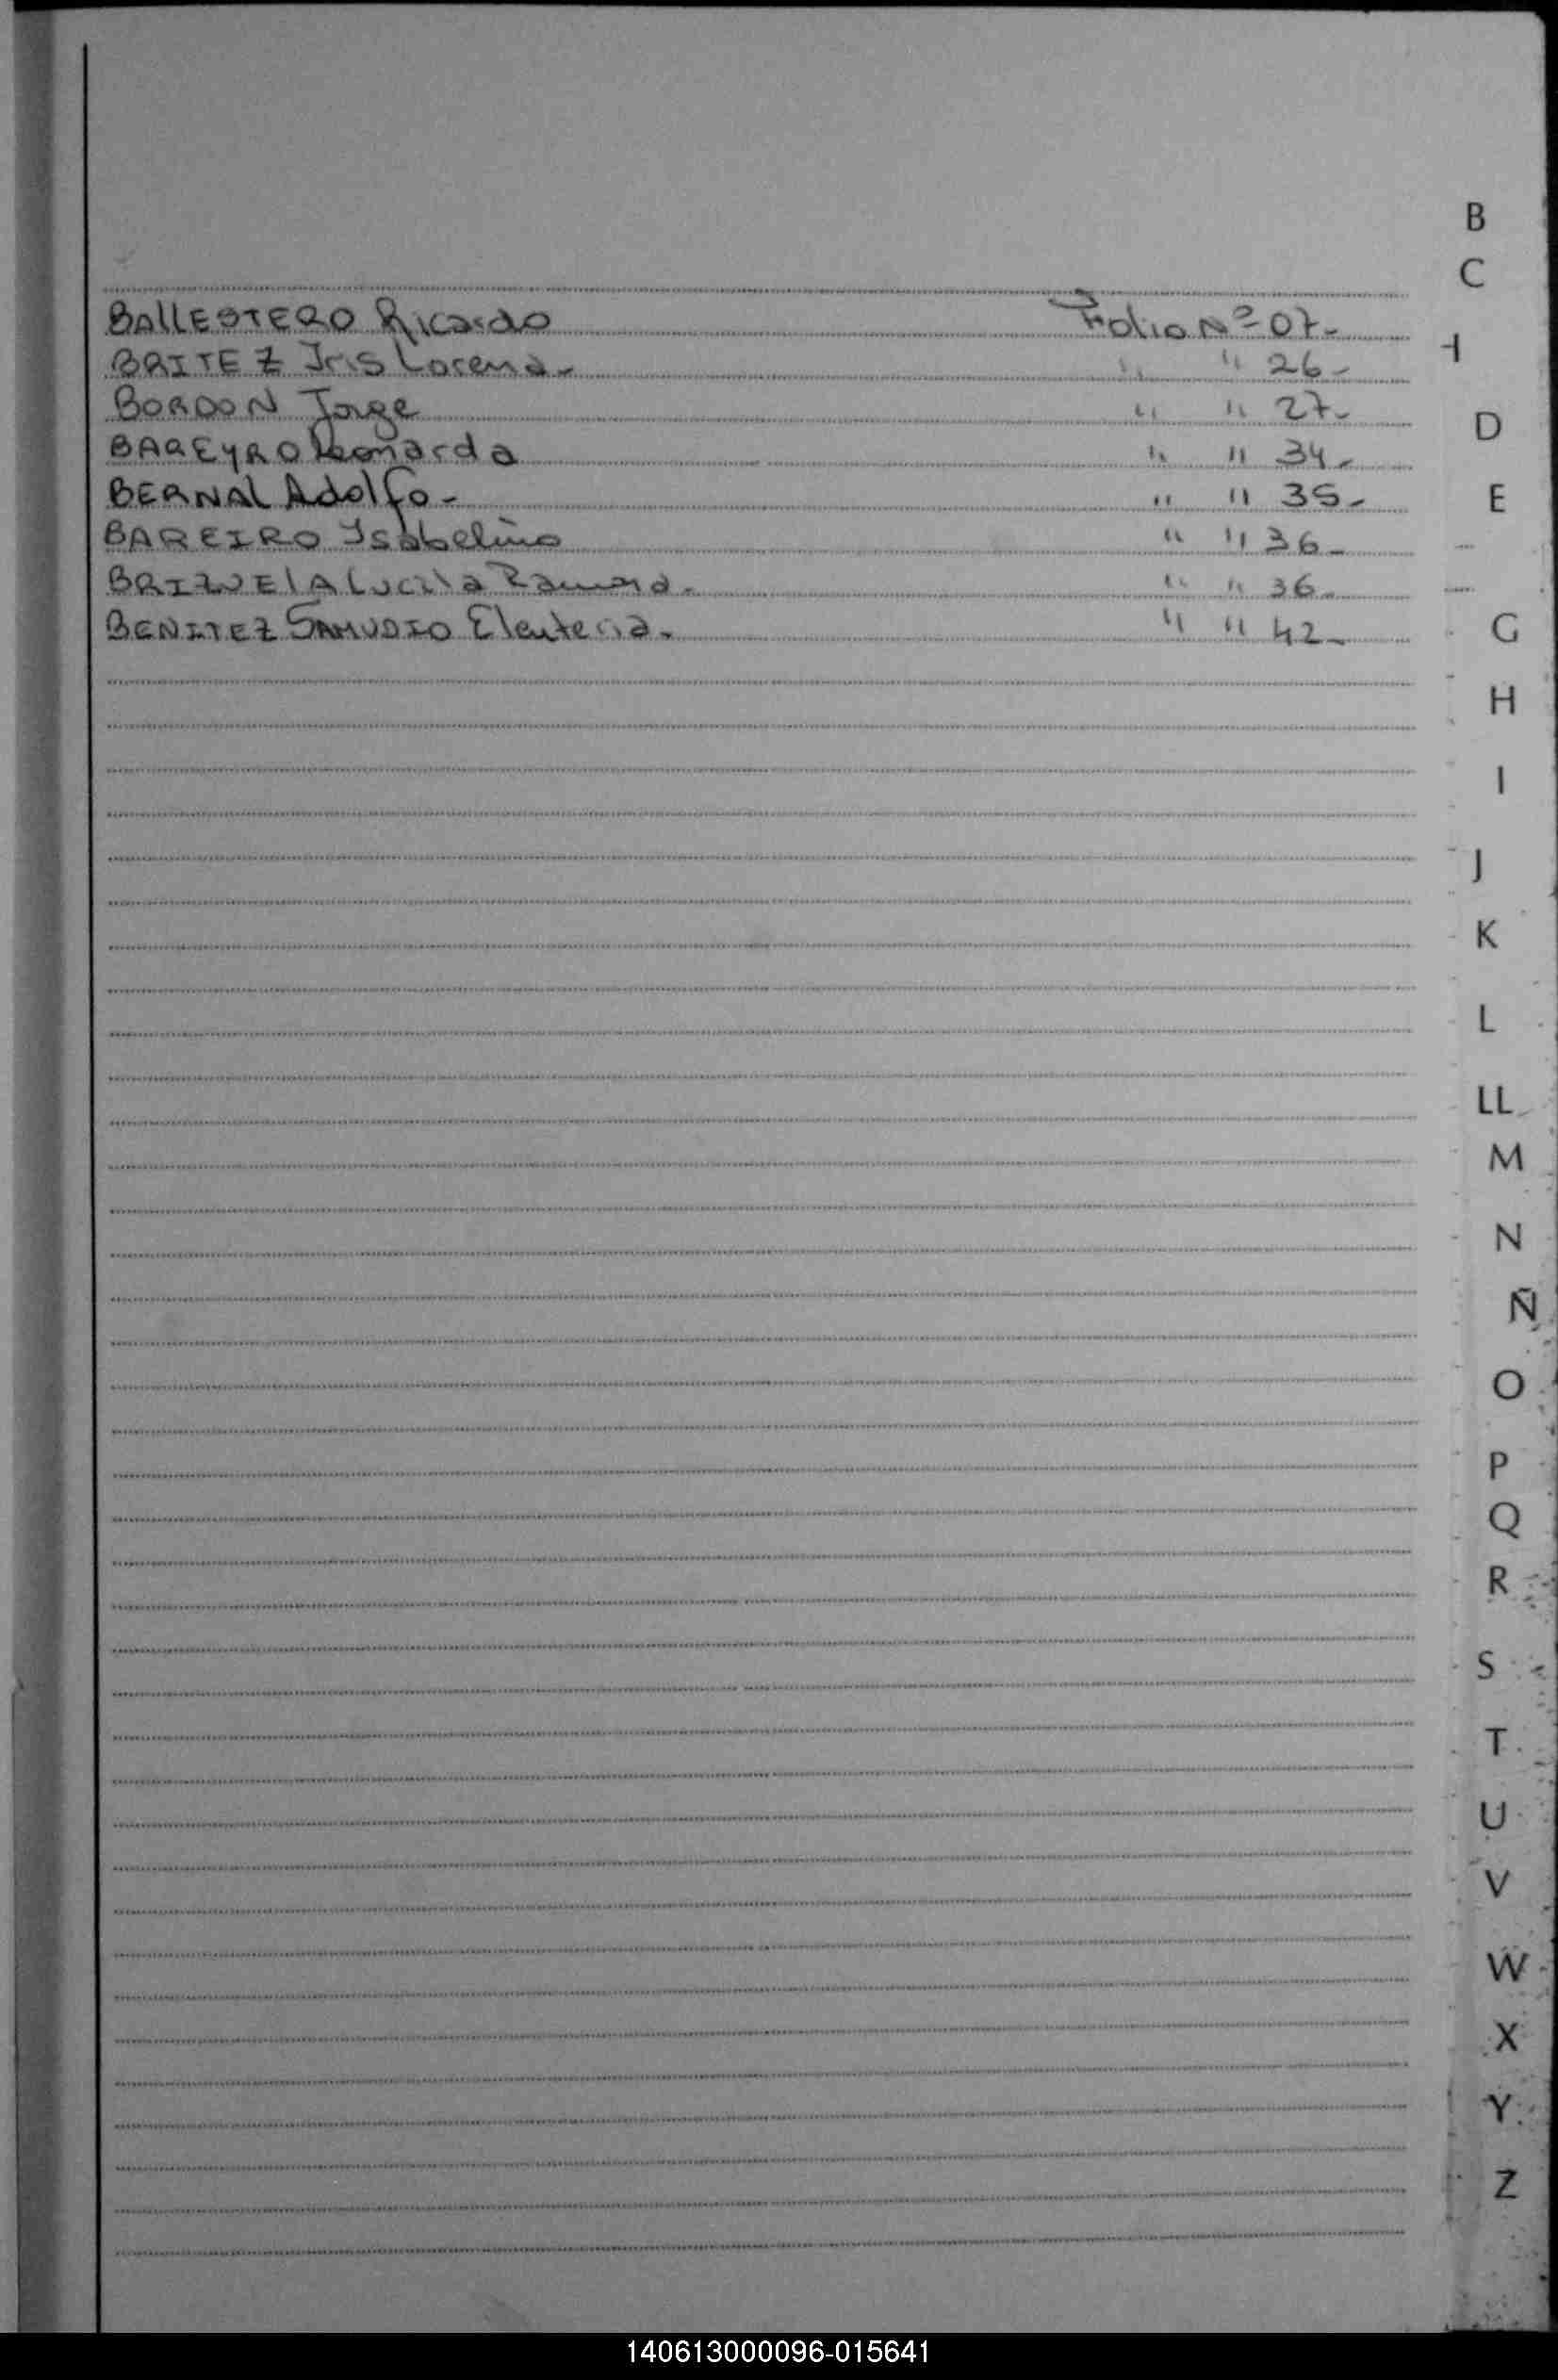 B
C
BALLESTERO Ricardo Folio Nº 07-
BRITEZ Iris Lorena- " " 26-
BORDON Jorge " " 27-
D
BAREYRO Leonarda " " 34-
BERNAL Adolfo- " " 35-
E
BAREIRO Isabelino " " 36-
BRIZUELA Lucila Ramona- " " 36-
BENITEZ SAMUDIO Eleuteria- " " 42-
G
H
I
J
K
L
LL
M
N
Ñ
O
P
Q
R
S
T
U
V
W
X
Y
Z
140613000096-015641